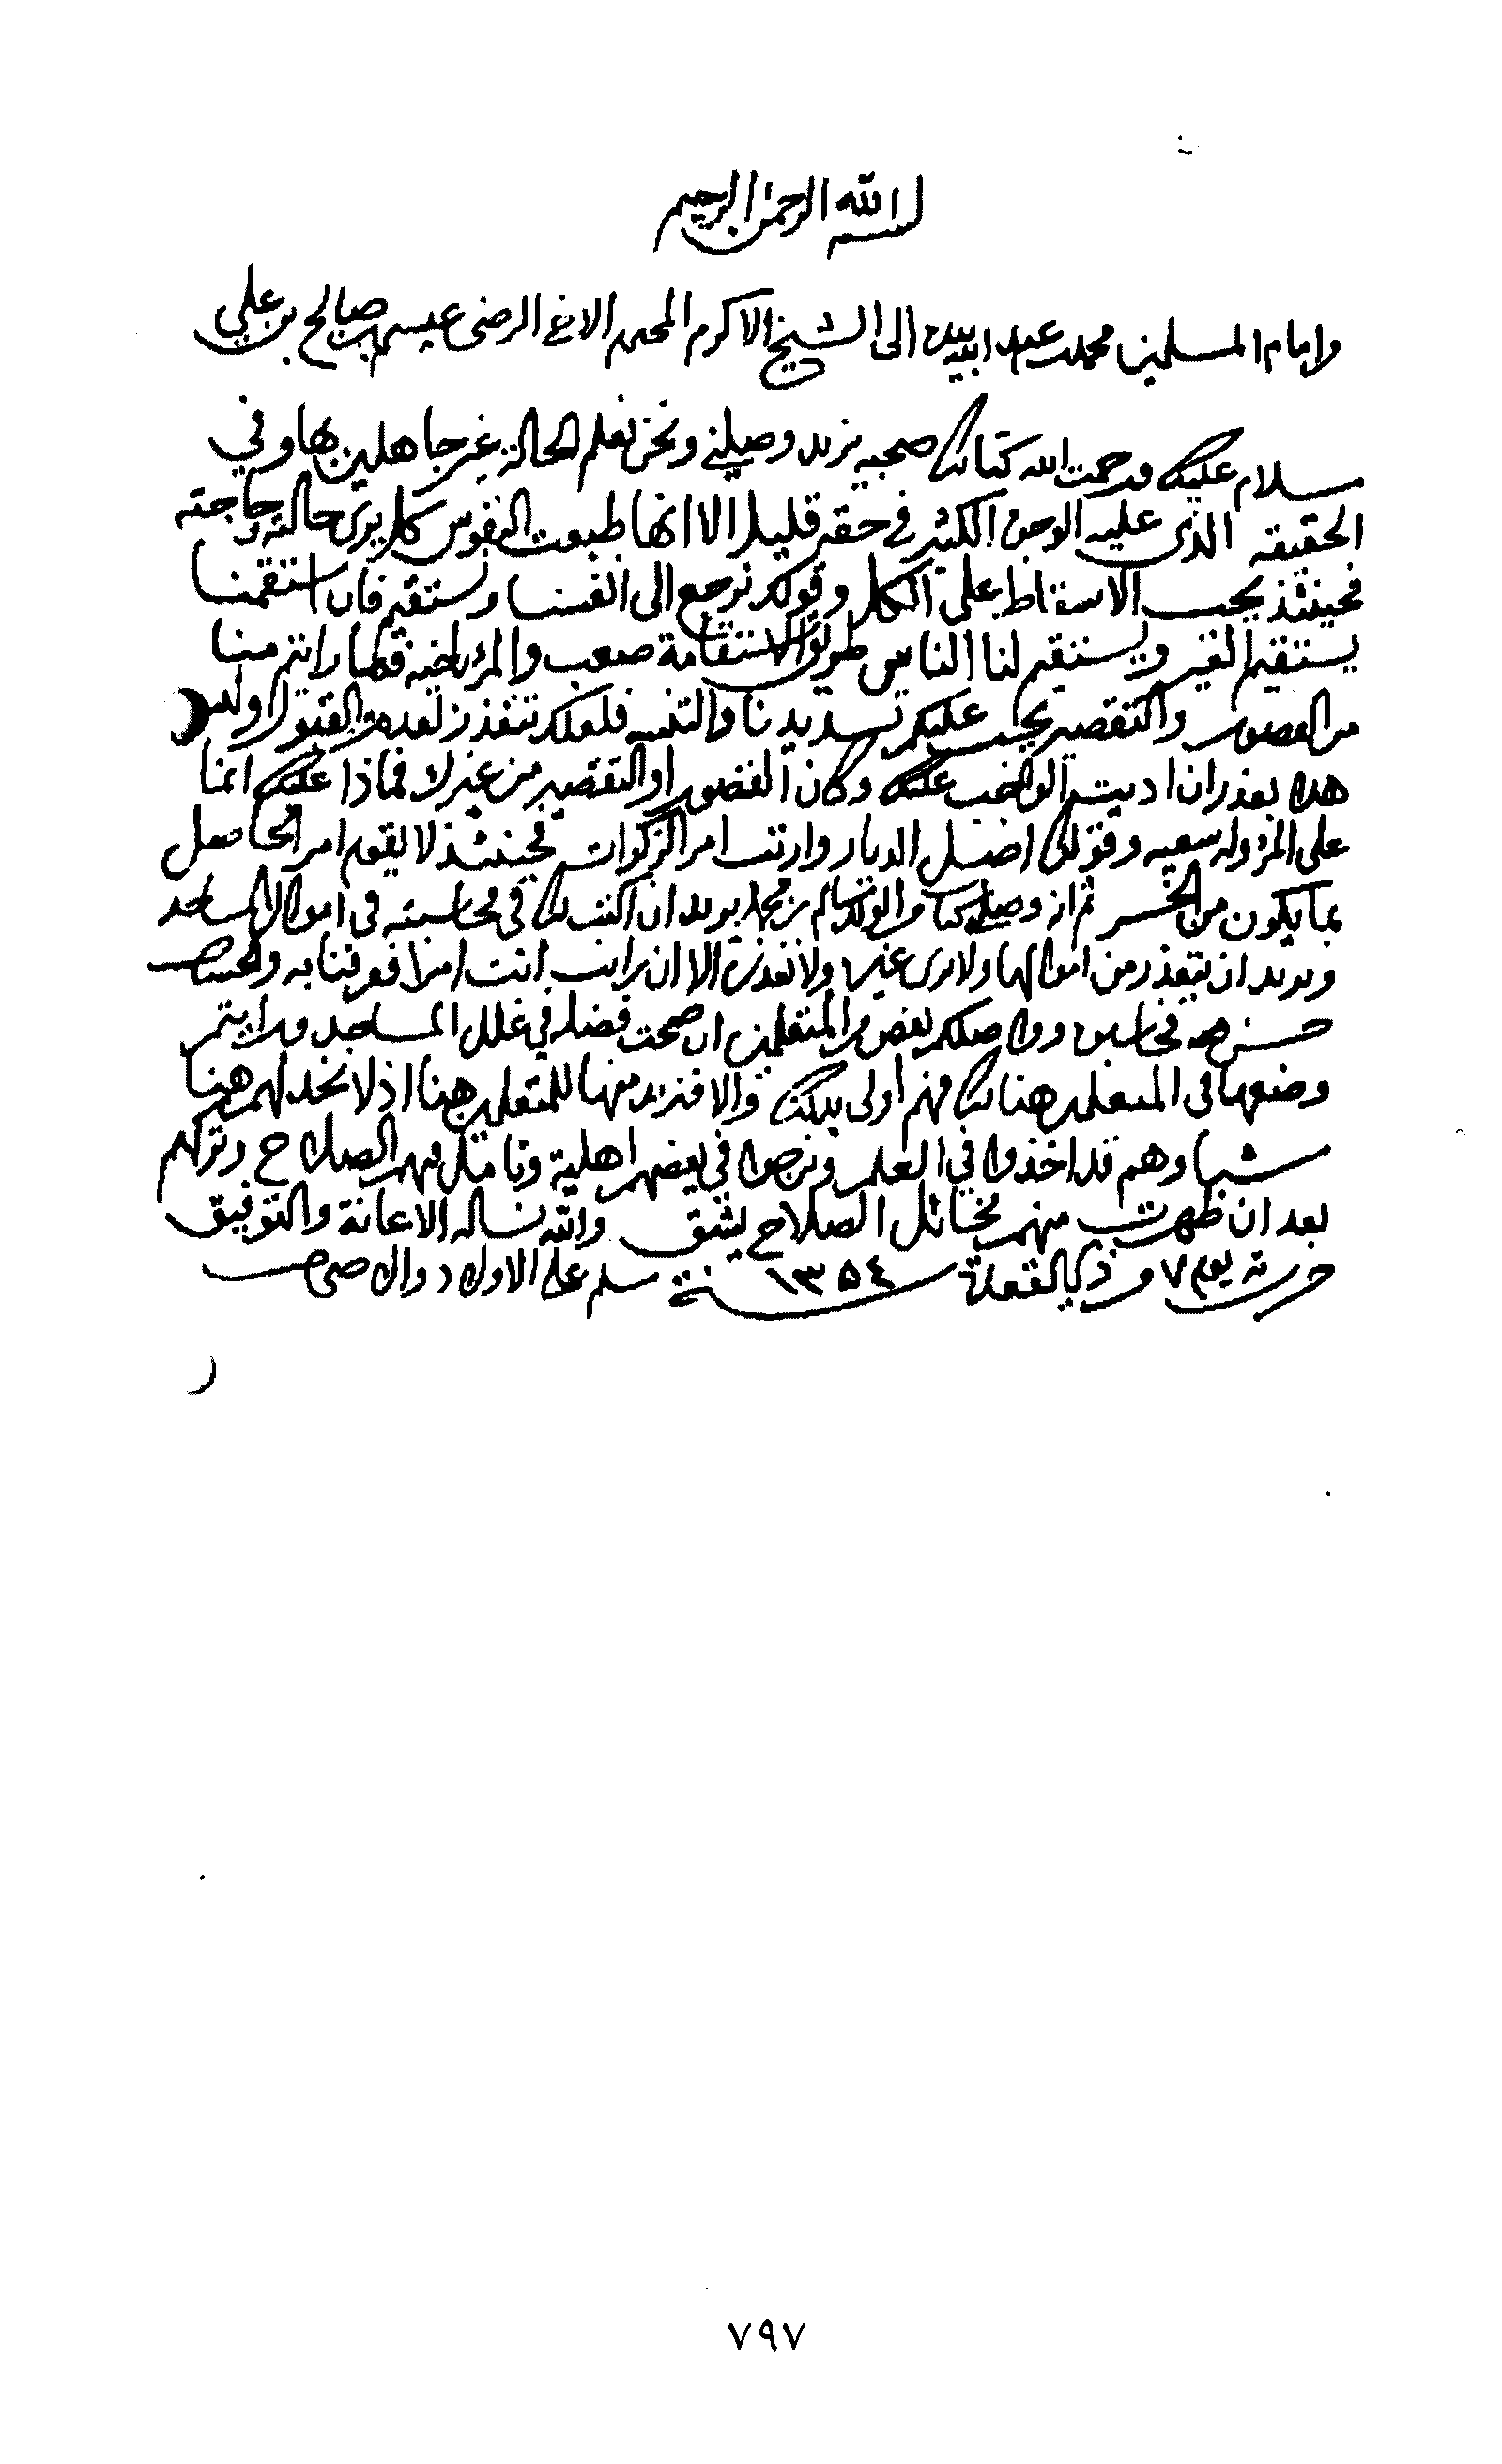 بسم الله الرحمن الرحيم
وامام المسلمين محمد بن عبد الله الى الشيخ الاكرم المحب الاخ الرضي عيسى بن صالح بن علي
سلام عليك ورحمت الله كتابك صحبه يزيد وصلني ونحن نعلم الحالة غير جاهلين بها وفي
الحقيقه الذي عليه الوجه الكثير في حقه قليل الا انها طبعت النفوس كل يرى حاله وحاجته
فحينئذ يجب الاسقاط على الكل وقولك نرجع الى انفسنا ونستقيم فان استقمنا
يستقيم الغير ويستقيم لنا الناس طريق الاستقامة صعب والمرء فكلما رايتم منا
من القصور والتقصير يجب عليكم تسديدنا والتنبيه فلعلك تتعذر بعدم القبول وليس
هذا بعذر ان اديت الواجب عليك وكان القصور او التقصير من غيرك فماذا عليك انما
على المرء وله سعيه وقولك اضمحل الديار وارتب امر الزكوات فحينئذ لا يقوم امر الحاصل
بما يكون من الخسر ثم انه وصلني كتاب من الولد سالم بن محمد يريد ان اكتب لك في محاسبته في اموال المساجد
ويريد ان يتعذر من اموالها ولا نرى غيره ولا نعذره الا ان رايت انت امرا فعرفنا به والحساب
فحاسبوه وواصلكم بعض من المتعلمين ان صحت فضله في غلل المساجد ورايتم
وضعها في المتعلمين هناك فهم اولى بذلك والا فنريد منها للمتعلمين هنا اذ لا نجد لهم هنا
شيئا وهم قد اخذوا في العلم ونرجوا في بعضهم اهلية ونامل فيهم الصلاح وتركهم
بعد ان ظهرت منهم مخائل الصلاح يشق والله نساله الاعانة والتوفيق
حررته يوم ٧ من ذي القعدة سنة ١٣٥٤ سلم على الاولاد والاصحاب
٧٩٧